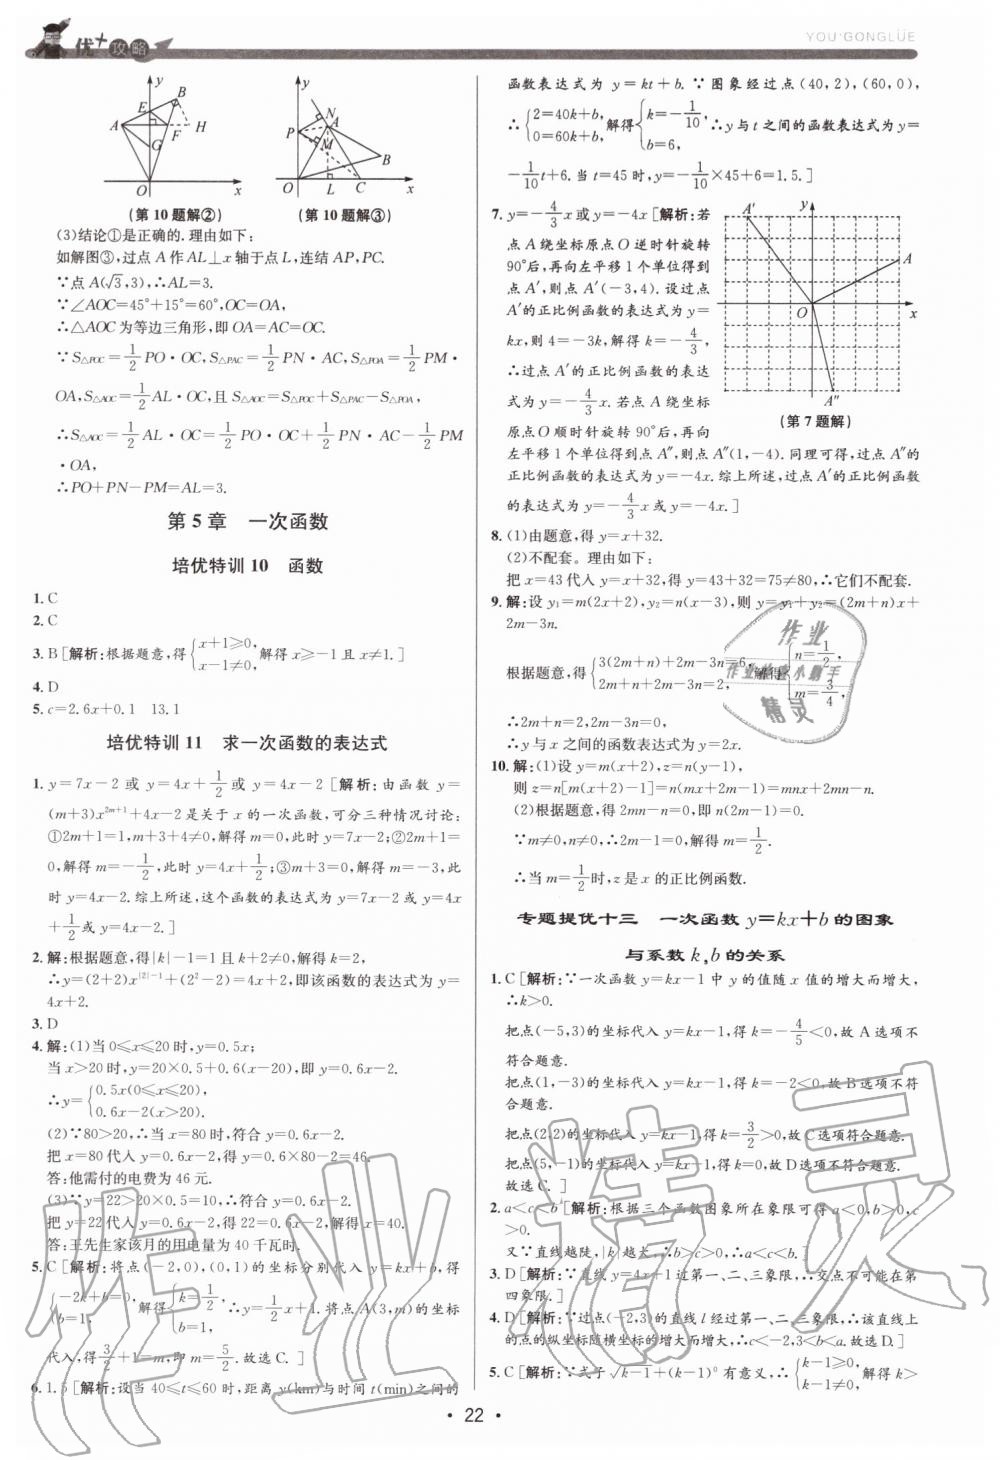 优+攻略
YOU+GONGLÜE
y
E
B
A
F
H
G
O
x
(第10题解②)
y
N
P
A
M
B
O
L
C
x
(第10题解③)
(3)结论①是正确的.理由如下:
如解图③,过点A作AL⊥x轴于点L,连结AP,PC.
∵点A(√3,3),∴AL=3.
∵∠AOC=45°+15°=60°,OC=OA,
∴△AOC为等边三角形,即OA=AC=OC.
∵S△POC=1/2 PO·OC,S△PAC=1/2 PN·AC,S△POA=1/2 PM·
OA,S△AOC=1/2 AL·OC,且S△AOC=S△POC+S△PAC-S△POA,
∴S△AOC=1/2 AL·OC=1/2 PO·OC+1/2 PN·AC-1/2 PM
·OA,
∴PO+PN-PM=AL=3.
第5章 一次函数
培优特训10 函数
1. C
2. C
3. B [解析:根据题意,得{x+1≥0, x-1≠0, 解得x≥-1且x≠1.]
4. D
5. c=2.6x+0.1 13.1
培优特训11 求一次函数的表达式
1. y=7x-2 或 y=4x+1/2 或 y=4x-2 [解析:由函数 y=
(m+3)x^(2m+1)+4x-2是关于x的一次函数,可分三种情况讨论:
①2m+1=1,m+3+4≠0,解得m=0,此时y=7x-2;②2m+1=
0,解得m=-1/2,此时y=4x+1/2;③m+3=0,解得m=-3,此
时y=4x-2.综上所述,这个函数的表达式为y=7x-2或y=4x
+1/2或y=4x-2.]
2. 解:根据题意,得|k|-1=1且k+2≠0,解得k=2,
∴y=(2+2)x^(|2|-1)+(2²-2)=4x+2,即该函数的表达式为y=
4x+2.
3. D
4. 解:(1)当0≤x≤20时,y=0.5x;
当x>20时,y=20×0.5+0.6(x-20),即y=0.6x-2.
∴y={0.5x(0≤x≤20), 0.6x-2(x>20).
(2)∵80>20,∴当x=80时,符合y=0.6x-2.
把x=80代入y=0.6x-2,得y=0.6×80-2=46.
答:他需付的电费为46元.
(3)∵y=22>20×0.5=10,∴符合y=0.6x-2.
把y=22代入y=0.6x-2,得22=0.6x-2,解得x=40.
答:王先生家该月的用电量为40千瓦时.
5. C [解析:将点(-2,0),(0,1)的坐标分别代入y=kx+b,得
{-2k+b=0, b=1, 解得{k=1/2, b=1, ∴y=1/2 x+1.将点A(3,m)的坐标
代入,得3/2+1=m,即m=5/2.故选C.]
6. 1.5 [解析:设当40≤t≤60时,距离y(km)与时间t(min)之间的
函数表达式为 y=kt+b.∵图象经过点(40,2),(60,0),
∴{2=40k+b, 0=60k+b, 解得{k=-1/10, b=6, ∴y与t之间的函数表达式为y=
-1/10 t+6.当t=45时,y=-1/10×45+6=1.5.]
7. y=-4/3 x或y=-4x [解析:若
点A绕坐标原点O逆时针旋转
90°后,再向左平移1个单位得到
点A′,则点A′(-3,4).设过点
A′的正比例函数的表达式为y=
kx,则4=-3k,解得k=-4/3,
∴过点A′的正比例函数的表达
式为y=-4/3 x.若点A绕坐标
原点O顺时针旋转90°后,再向
A′
y
A
O
x
A″
(第7题解)
左平移1个单位得到点A″,则点A″(1,-4).同理可得,过点A″的
正比例函数的表达式为y=-4x.综上所述,过点A′的正比例函数
的表达式为y=-4/3 x或y=-4x.]
8. (1)由题意,得y=x+32.
(2)不配套。理由如下:
把x=43代入y=x+32,得y=43+32=75≠80,∴它们不配套.
9. 解:设y₁=m(2x+2),y₂=n(x-3),则y=y₁+y₂=(2m+n)x+
2m-3n.
根据题意,得{3(2m+n)+2m-3n=6, 2m+n+2m-3n=2, 解得{n=1/2, m=3/4,
∴2m+n=2,2m-3n=0.
∴y与x之间的函数表达式为y=2x.
10. 解:(1)设y=m(x+2),z=n(y-1),
则z=n[m(x+2)-1]=n(mx+2m-1)=mnx+2mn-n.
(2)根据题意,得2mn-n=0,即n(2m-1)=0.
∵m≠0,n≠0,∴2m-1=0,解得m=1/2.
∴当m=1/2时,z是x的正比例函数.
专题提优十三 一次函数y=kx+b的图象
与系数k,b的关系
1. C [解析:∵一次函数y=kx-1中y的值随x值的增大而增大,
∴k>0.
把点(-5,3)的坐标代入y=kx-1,得k=-4/5<0,故A选项不
符合题意.
把点(1,-3)的坐标代入y=kx-1,得k=-2<0,故B选项不符
合题意.
把点(2,2)的坐标代入y=kx-1,得k=3/2>0,故C选项符合题意.
把点(5,-1)的坐标代入y=kx-1,得k=0,故D选项不符合题意.
故选C.]
2. a<c<b [解析:根据三个函数图象所在象限可得a<0,b>0,c
>0.
又∵直线越陡,|k|越大,∴b>c>0,∴a<c<b.]
3. D [解析:∵直线y=4x+1过第一、二、三象限,∴交点不可能在第
四象限.]
4. D [解析:∵过点(-2,3)的直线l经过第一、二、三象限,∴该直线上
的点的纵坐标随横坐标的增大而增大,∴c<-2,3<b<a.故选D.]
5. C [解析:∵式子√(k-1)+(k-1)⁰有意义,∴{k-1≥0, k-1≠0, 解得k>
· 22 ·
作业
作业检查小助手
精灵
作业精灵